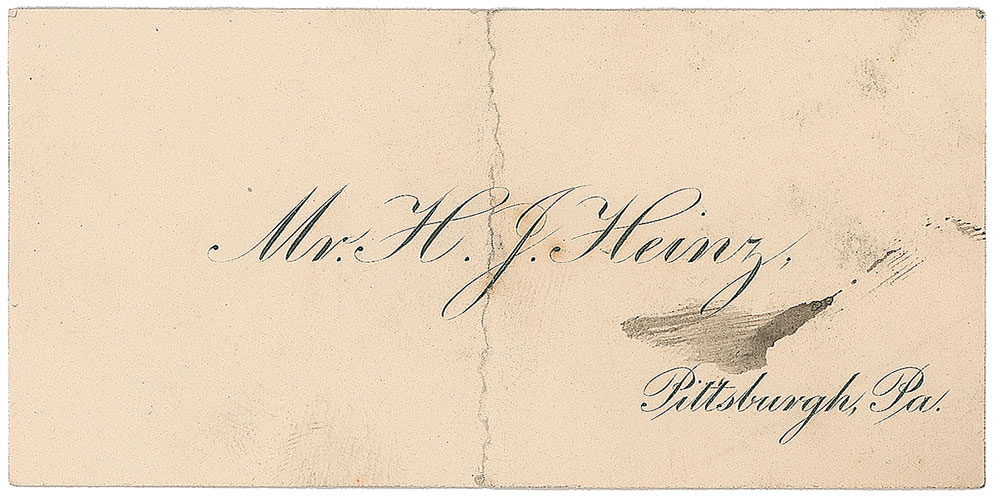 Mr. H. J. Heinz,
Pittsburgh, Pa.